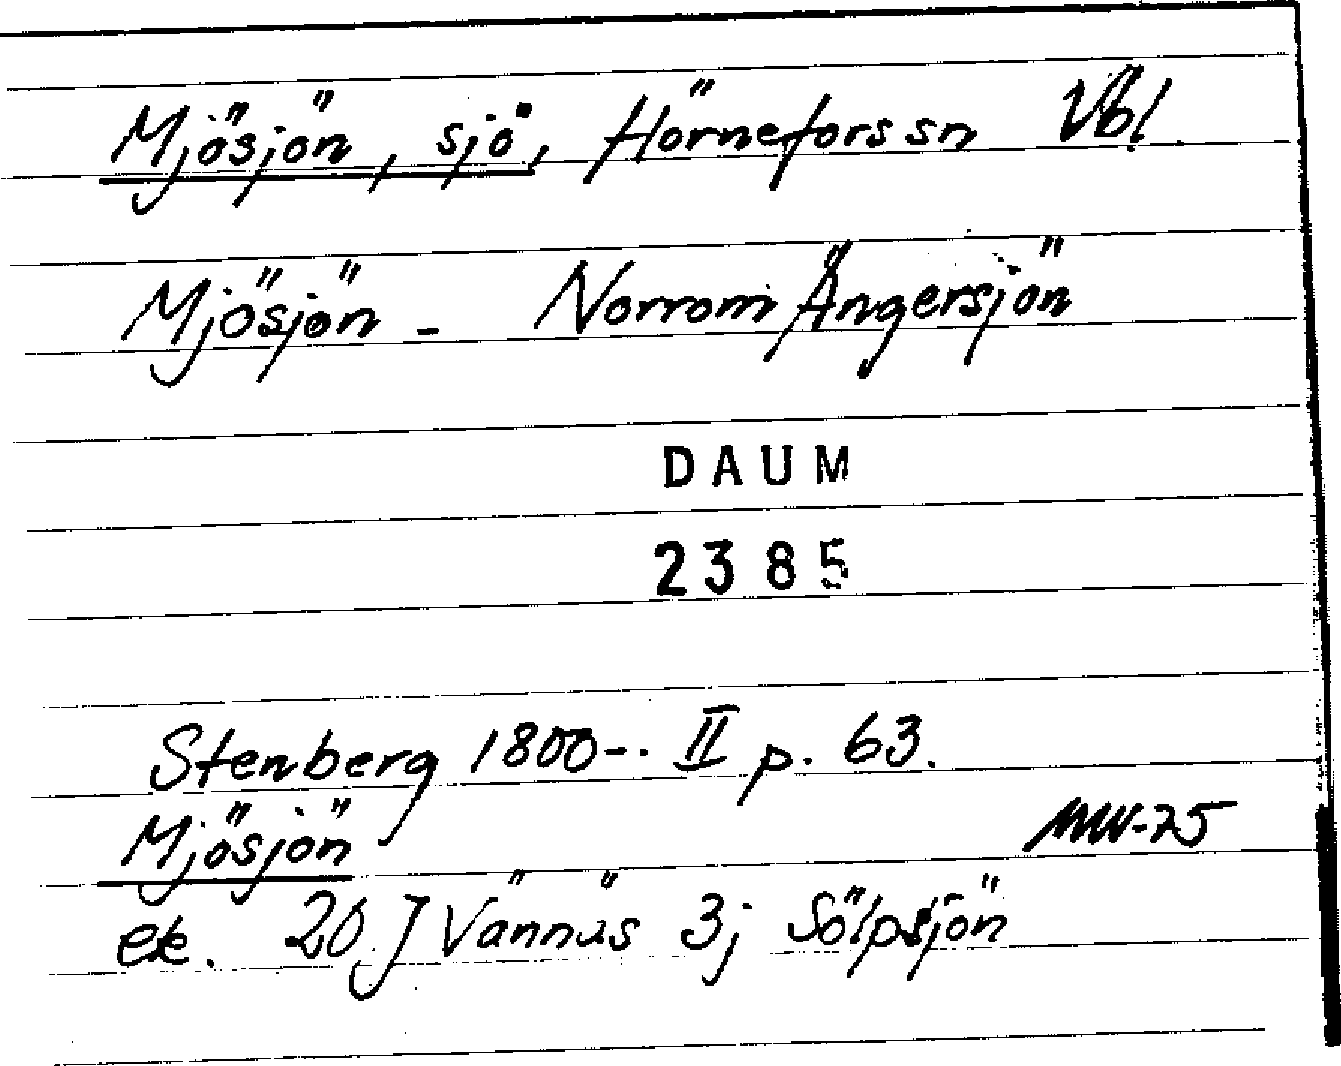 Mjösjön, sjö, Hörnefors sn Vbl
Mjösjön - Norrom Ängersjön
DAUM
2385
Stenberg 1800-. II p. 63.
Mjösjön MW-75
ek. 20 J Vännäs 3j Sölpsjön